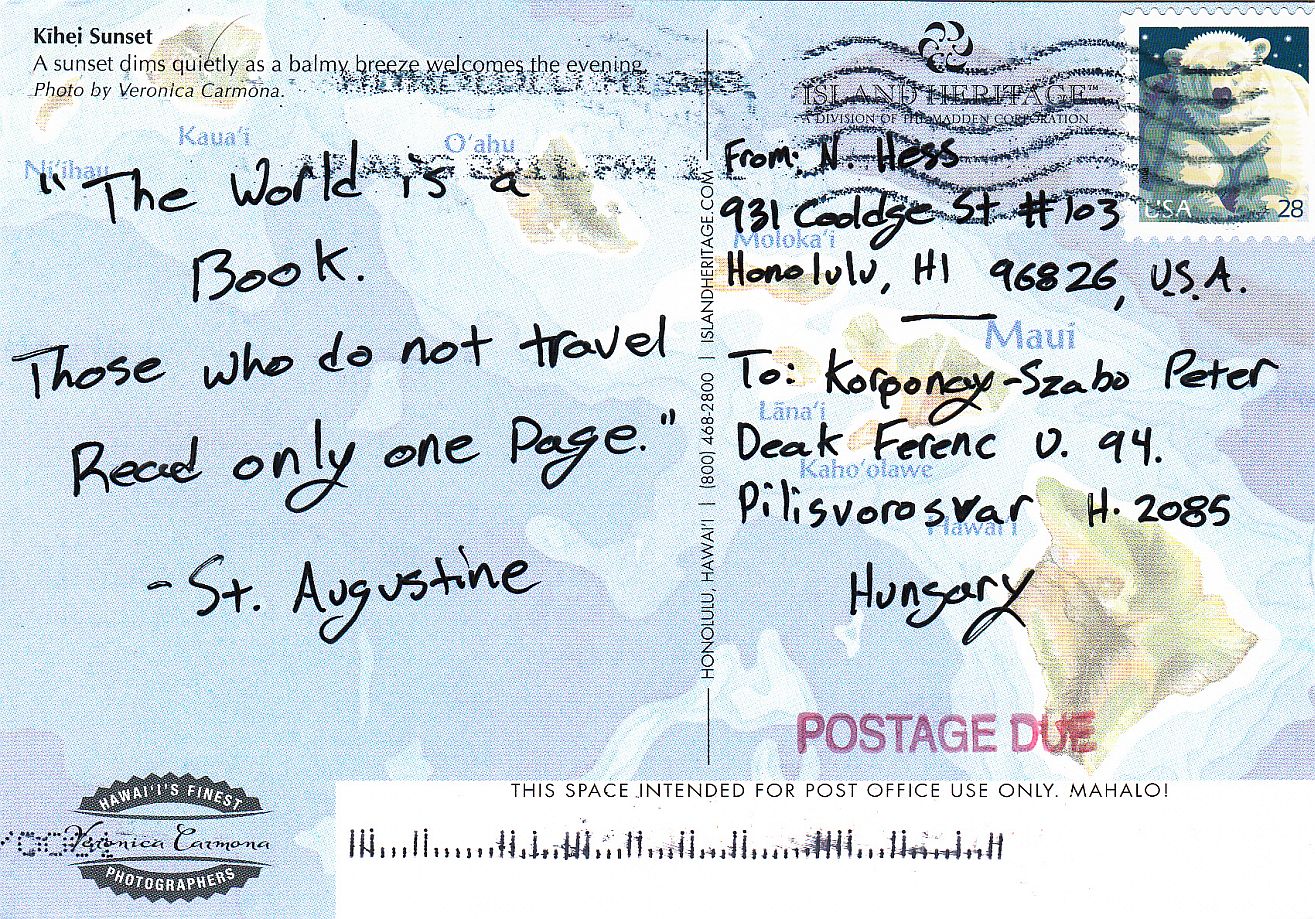 Kīhei Sunset
A sunset dims quietly as a balmy breeze welcomes the evening.
Photo by Veronica Carmona.
Kaua'i
Ni'ihau
O'ahu
"The World is a
Book.
Those who do not travel
Read only one Page."
- St. Augustine
HAWAI'I'S FINEST
Veronica Carmona
PHOTOGRAPHERS
HONOLULU, HAWAI'I | (800) 468-2800 | ISLANDHERITAGE.COM
ISLAND HERITAGE™
A DIVISION OF THE MADDEN CORPORATION
USA 28
From: N. Hess
931 Cooldge St #103
Moloka'i
Honolulu, HI 96826, U.S.A.
Maui
To: Korponay-Szabo Peter
Lāna'i
Deak Ferenc U. 94.
Kaho'olawe
Pilisvorosvar H. 2085
Hawai'i
Hungary
POSTAGE DUE
THIS SPACE INTENDED FOR POST OFFICE USE ONLY. MAHALO!